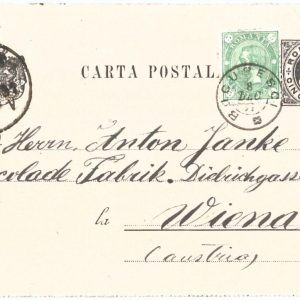 ROMANIA
CARTA POSTALA
BUCURESCI
Herrn Anton Janke
colade Fabrik. Didrichgass
la Wiena
(austria)